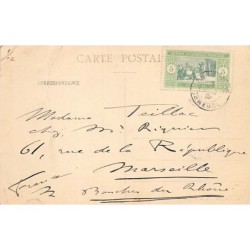 CARTE POSTALE
CORRESPONDANCE
Madame Teillac
chez Mr Riquier
61, rue de la République
Marseille
France
Bouches du Rhône